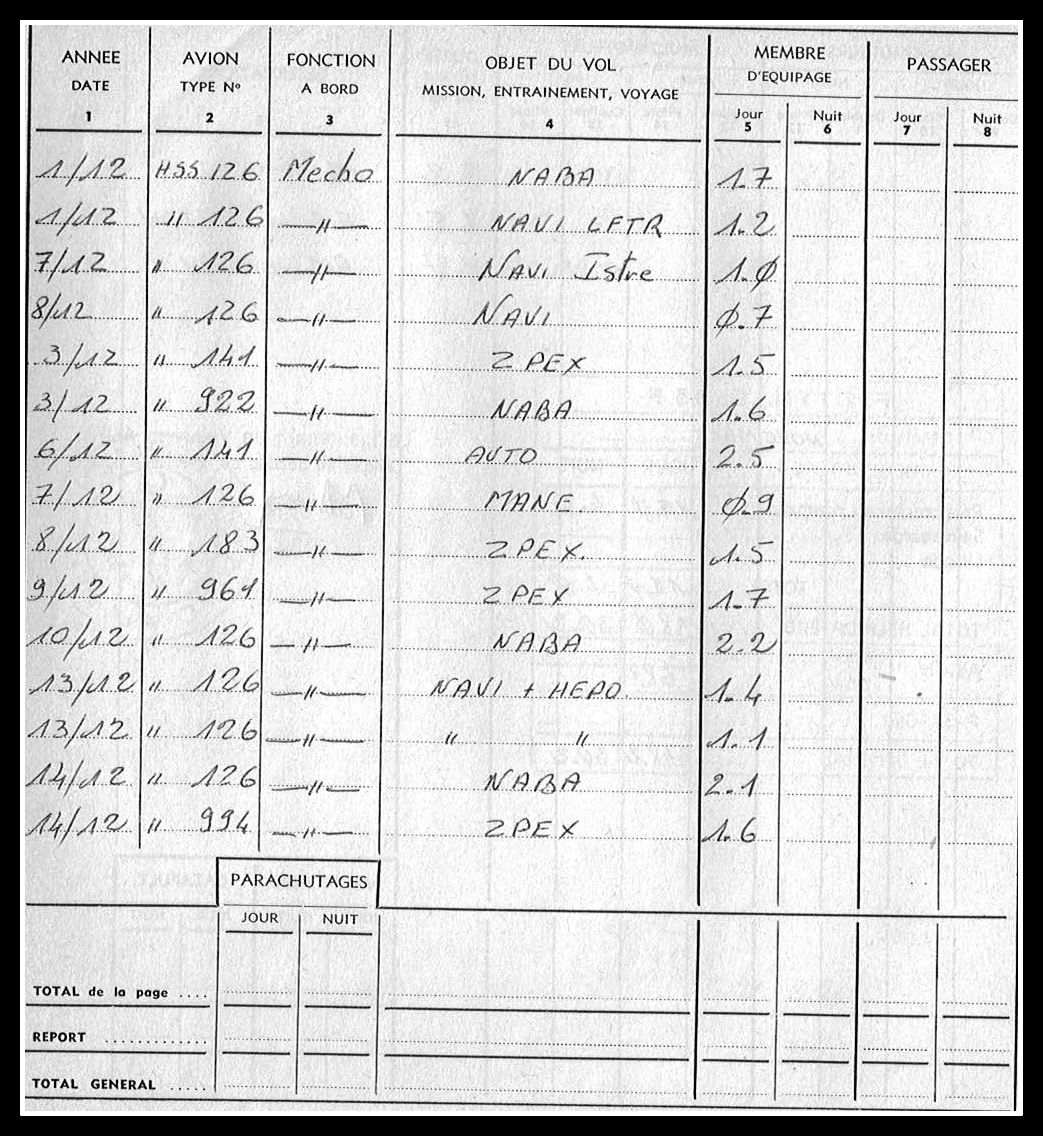 ANNEE AVION FONCTION OBJET DU VOL MEMBRE PASSAGER
DATE TYPE Nº A BORD MISSION, ENTRAINEMENT, VOYAGE D'EQUIPAGE
Jour Nuit Jour Nuit
1 2 3 4 5 6 7 8
1/12 HSS 126 Mecbo NABA 1.7
1/12 " 126 —"— NAVI LFTR 1.2
7/12 " 126 —"— NAVI Istre 1.0
8/12 " 126 —"— NAVI 0.7
3/12 " 141 —"— ZPEX 1.5
3/12 " 922 —"— NABA 1.6
6/12 " 141 —"— AUTO 2.5
7/12 " 126 —"— MANE 0.9
8/12 " 183 —"— ZPEX. 1.5
9/12 " 961 —"— ZPEX 1.7
10/12 " 126 —"— NABA 2.2
13/12 " 126 —"— NAVI + HEPO 1.4
13/12 " 126 —"— " " 1.1
14/12 " 126 —"— NABA 2.1
14/12 " 994 —"— ZPEX 1.6
PARACHUTAGES
JOUR NUIT
TOTAL de la page ....
REPORT ............
TOTAL GENERAL .....